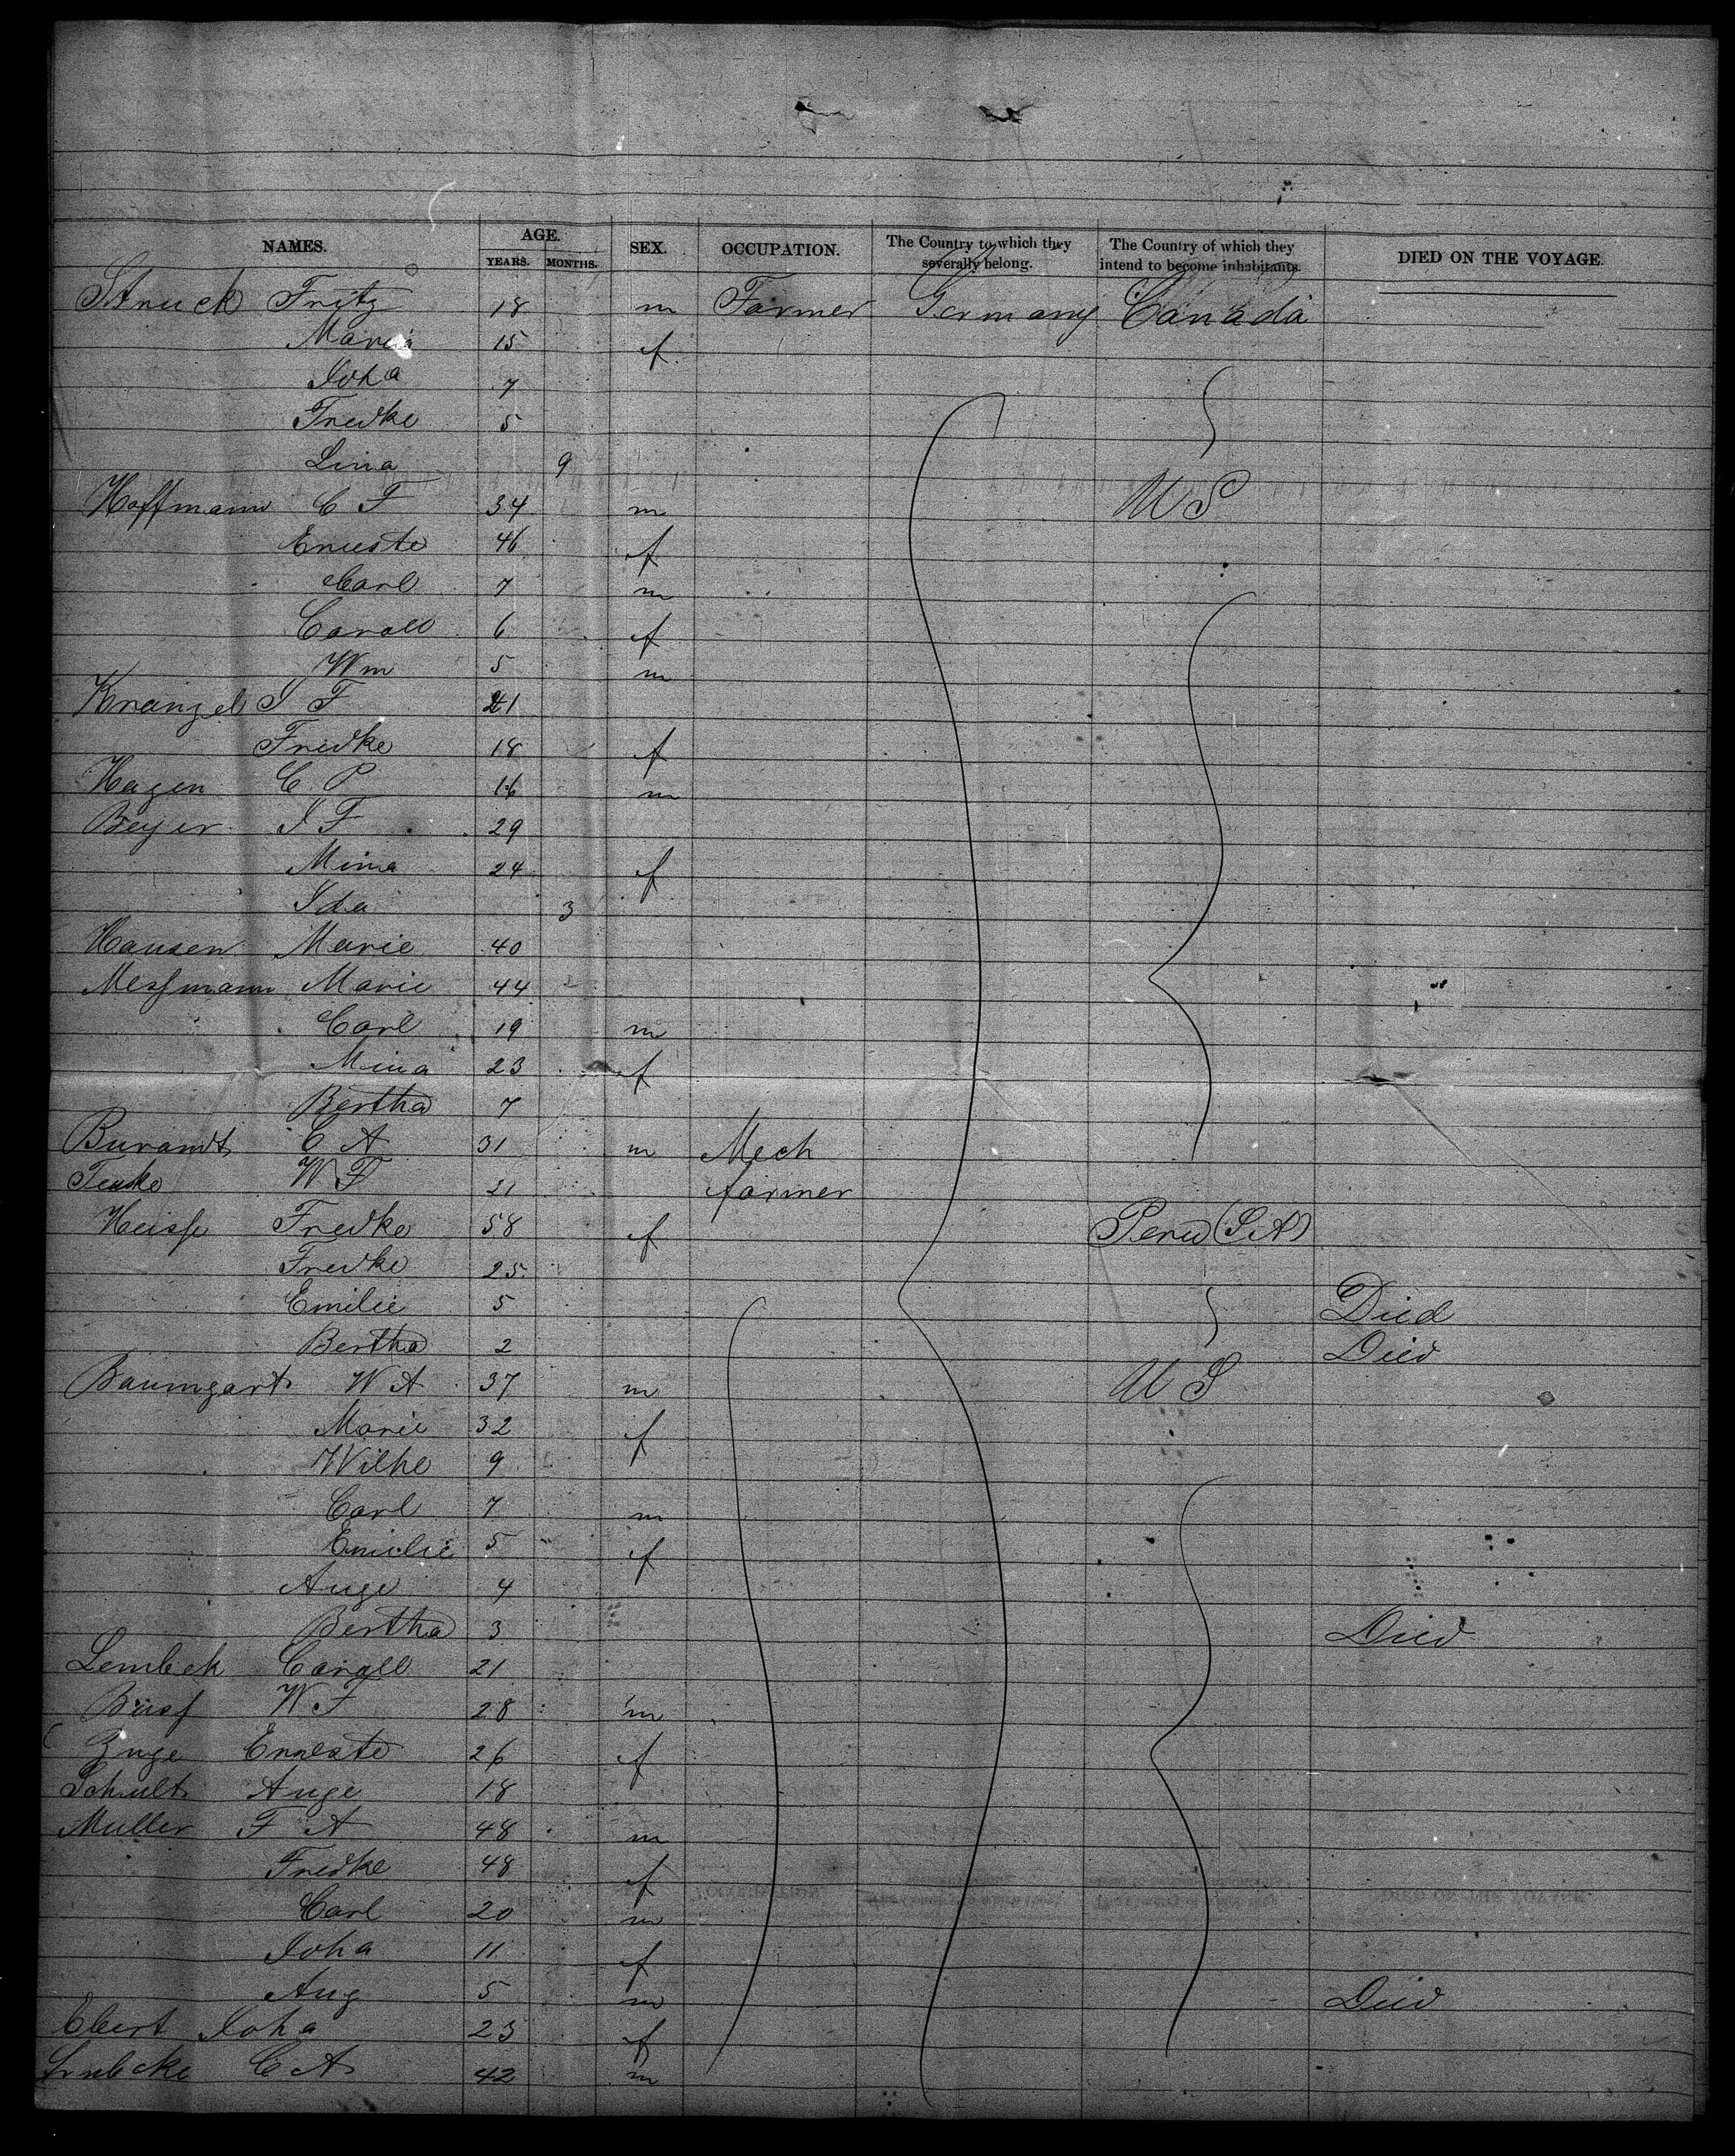 NAMES. AGE. SEX. OCCUPATION. The Country to which they severally belong. The Country of which they intend to become inhabitants. DIED ON THE VOYAGE.
YEARS. MONTHS.
Struck Fritz 18 m Farmer Germany Canada
Maria 15 f
Joha 7
Fredke 5
Lina 9
Hoffmann C F 34 m U S
Erneste 46 f
Carl 7 m
Caroll 6 f
Wm 5 m
Krangel J F 21
Fredke 18 f
Hagen C P 16 m
Beyer J F 29
Mina 24 f
Ida 3
Hansen Marie 40
Messmann Marie 44
Carl 19 m
Mina 23 f
Bertha 7
Burandt C A 31 m Mech
W F 21 farmer
Heiss Fredke 58 f Peru (S.A)
Fredke 25
Emilie 5 Died
Bertha 2 Died
Baumgart W A 37 m U S
Marie 32 f
Wilhe 9
Carl 7 m
Emilie 5 f
Auge 4
Bertha 3 Died
Lembek Caroll 21
W F 28 m
Zuge Erneste 26 f
Schult Auge 18
Muller F A 48 m
Fredke 48 f
Carl 20 m
Joha 11 f
Aug 5 m Died
Ebert Joha 23 f
Lubcke C A 42 m